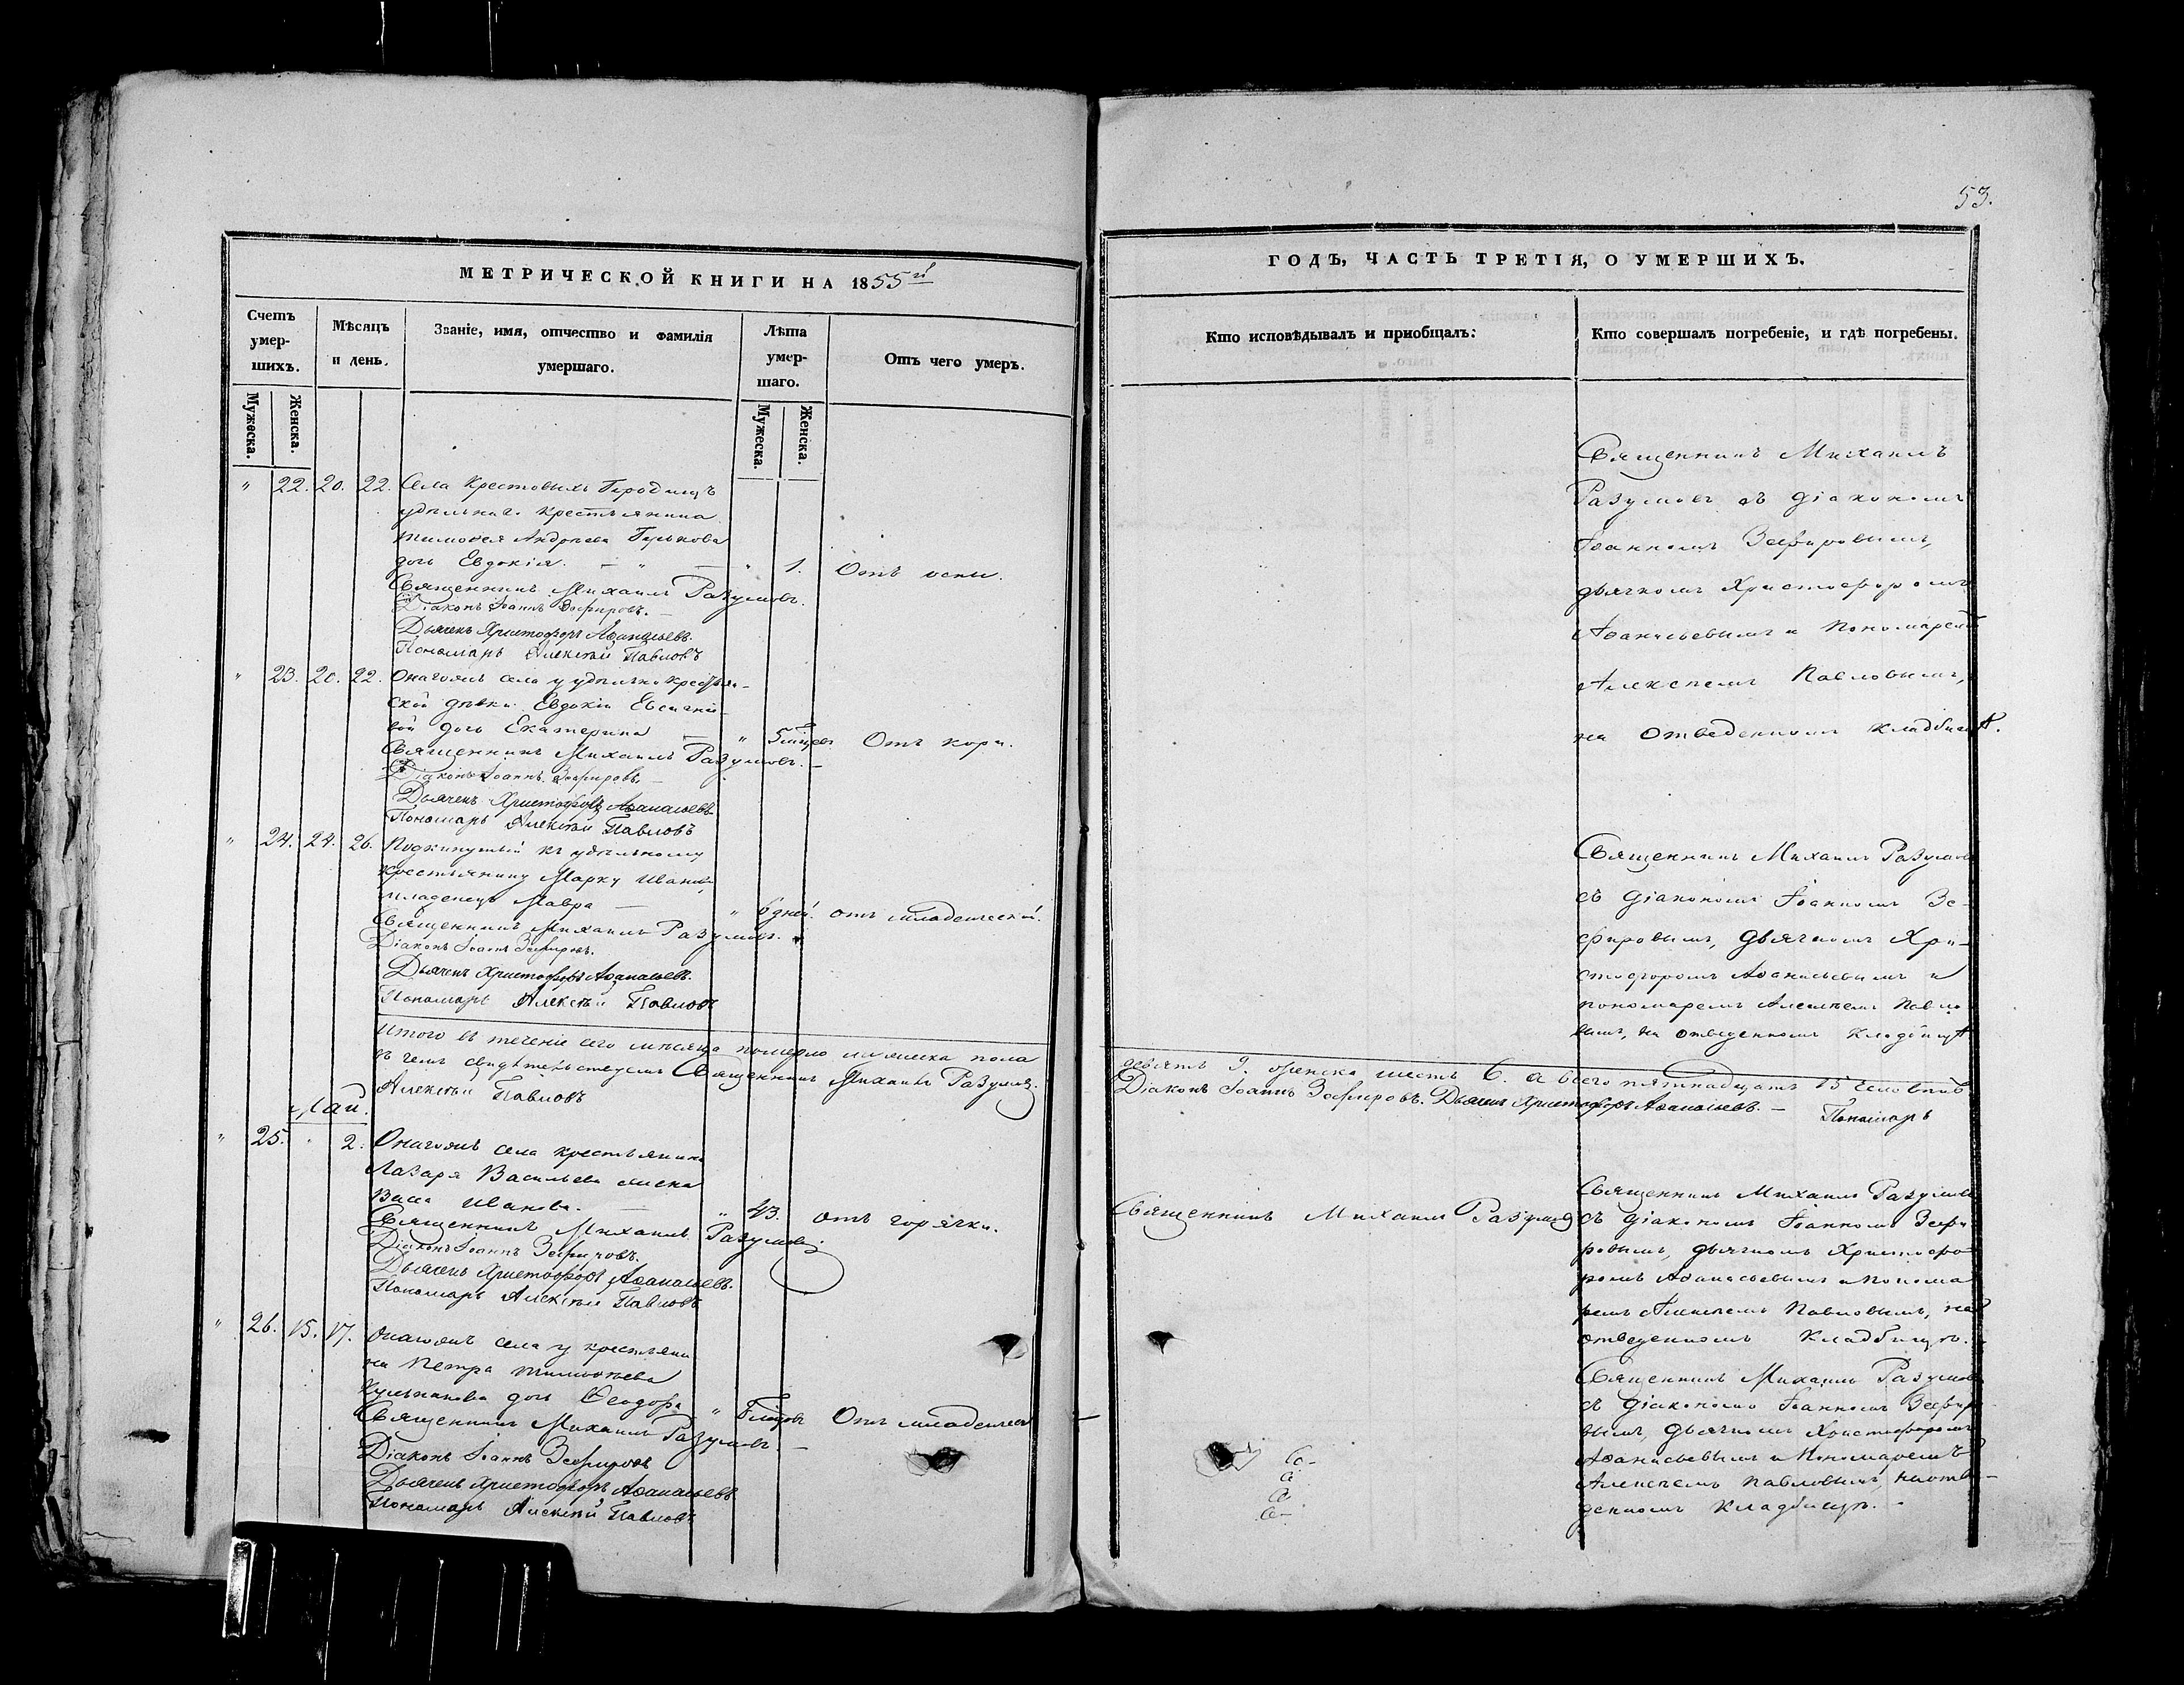 53.
МЕТРИЧЕСКОЙ КНИГИ НА 1855й
Счетъ умер- шихъ.
Мѣсяцъ и день.
Званіе, имя, отчество и фамилія умершаго.
Лѣта умер- шаго.
Отъ чего умеръ.
Мужеска. Женска.
Мужеска. Женска.
" 22. 20. 22. Села Крестовыхъ Городищъ
удѣльнаго крестьянина
Тимоѳея Андреева Горькова
дочь Евдокія. — " — " 1. Отъ оспы.
Священникъ Михаилъ Разумовъ.
Діаконъ Іоаннъ Зефировъ.
Дьячекъ Христофоръ Аѳанасьевъ.
Пономарь Алексѣй Павловъ
" 23. 20. 22. Онагожъ села у удѣльно крестьян-
ской дѣвки Евдокіи
вой дочь Екатерина — " 5 мѣсяц. Отъ кори.
Священникъ Михаилъ Разумовъ. —
Діаконъ Іоаннъ Зефировъ. —
Дьячекъ Христофоръ Аѳанасьевъ
Пономарь Алексѣй Павловъ
" 24. 24. 26. Подкинутый къ удѣльному
крестьянину Марку Иванову
младенецъ Мавра — " 6 дней. отъ младенческой.
Священникъ Михаилъ Разумовъ.
Діаконъ Іоаннъ Зефировъ.
Дьячекъ Христофоръ Аѳанасьевъ.
Пономарь Алексѣй Павловъ
Итого въ теченіе сего мѣсяца померло мужеска пола
въ чемъ свидѣтельствуемъ Священникъ Михаилъ Разумовъ.
Алексѣй Павловъ
Май.
" 25. " 2. Онагожъ села крестьянина
Лазаря Васильева жена
Васса Иванова. — " 43. отъ горячки.
Священникъ Михаилъ Разумовъ.
Діаконъ Іоаннъ Зефировъ.
Дьячекъ Христофоръ Аѳанасьевъ.
Пономарь Алексѣй Павловъ
" 26. 15. 17. Онагожъ села у крестьяни
на Петра Тимоѳеева
дочь Ѳеодора " Отъ младенчес
Священникъ Михаилъ Разумовъ —
Діаконъ Іоаннъ Зефировъ
Дьячекъ Христофоръ Аѳанасьевъ
Пономарь Алексѣй Павловъ
ГОДЪ, ЧАСТЬ ТРЕТІЯ, О УМЕРШИХЪ.
Кто исповѣдывалъ и пріобщалъ:
Кто совершалъ погребеніе, и гдѣ погребены.
Священникъ Михаилъ
Разумовъ съ діакономъ
Іоанномъ Зефировымъ,
дьячкомъ Христофоромъ
Аѳанасьевымъ и Пономаремъ
Алексѣемъ Павловымъ,
на отведенномъ кладбищѣ.
Священникъ Михаилъ Разумовъ
съ діакономъ Іоанномъ Зе-
фировымъ, дьячкомъ Хри-
стофоромъ Аѳанасьевымъ и
пономаремъ Алексѣемъ Павло
вымъ, на отведенномъ кладбищѣ
девять 9. женска шесть 6. а всего пятнадцать 15 человѣкъ
Діаконъ Іоаннъ Зефировъ. Дьячекъ Христофоръ Аѳанасьевъ. — Пономарь
Священникъ Михаилъ Разумовъ
Священникъ Михаилъ Разумовъ
съ діакономъ Іоанномъ Зефи
ровымъ, дьячкомъ Христофо
ромъ Аѳанасьевымъ и понома
ремъ Алексѣемъ Павловымъ, на
отведенномъ кладбищѣ.
Священникъ Михаилъ Разумовъ
съ діакономъ Іоанномъ Зефиро
вымъ, дьячкомъ Христофоромъ
Аѳанасьевымъ и Пономаремъ
Алексѣемъ Павловымъ, на отве-
денномъ кладбищѣ.